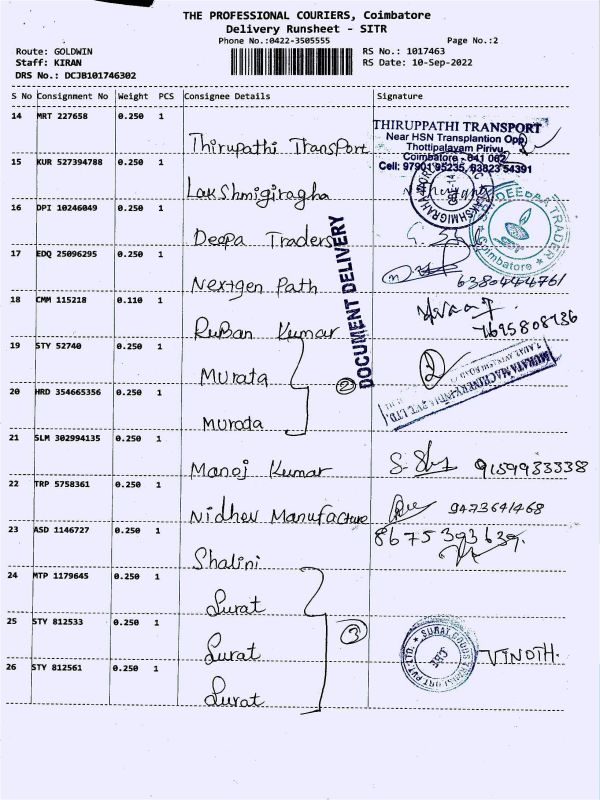 THE PROFESSIONAL COURIERS, Coimbatore
Delivery Runsheet - SITR
Phone No.:0422-3505555 Page No.:2
Route: GOLDWIN RS No.: 1017463
Staff: KIRAN RS Date: 10-Sep-2022
DRS No.: DCJB101746302
S No Consignment No Weight PCS Consignee Details Signature
14 MRT 227658 0.250 1
Thirupathi Transport
THIRUPPATHI TRANSPORT
Near HSN Transplantion Opp
Thottipalayam Pirivu,
Coimbatore - 641 062
Cell: 97901 95235, 83823 54391
15 KUR 527394788 0.250 1
Lakshmigiragha
16 DPI 10246049 0.250 1
Deepa Traders
DEEPAA TRADER
Coimbatore
17 EDQ 25096295 0.250 1
Nextgen Path
6380444761
DOCUMENT DELIVERY
18 CMM 115218 0.110 1
Ruban Kumar
7695808736
19 STY 52740 0.250 1
Murata
2
MURATA MACHINERY INDIA PVT. LTD.
20 HRD 354665356 0.250 1
Muroda
21 SLM 302994135 0.250 1
Manoj Kumar 9159933338
22 TRP 5758361 0.250 1
Nidhev Manufacture 9473641468
23 ASD 1146727 0.250 1
8675393639.
Shalini
24 MTP 1179645 0.250 1
Surat
25 STY 812533 0.250 1
3
Surat
SURAT GOODS TRANSPORT PVT. LTD.
CBE
VINOTH.
26 STY 812561 0.250 1
Surat